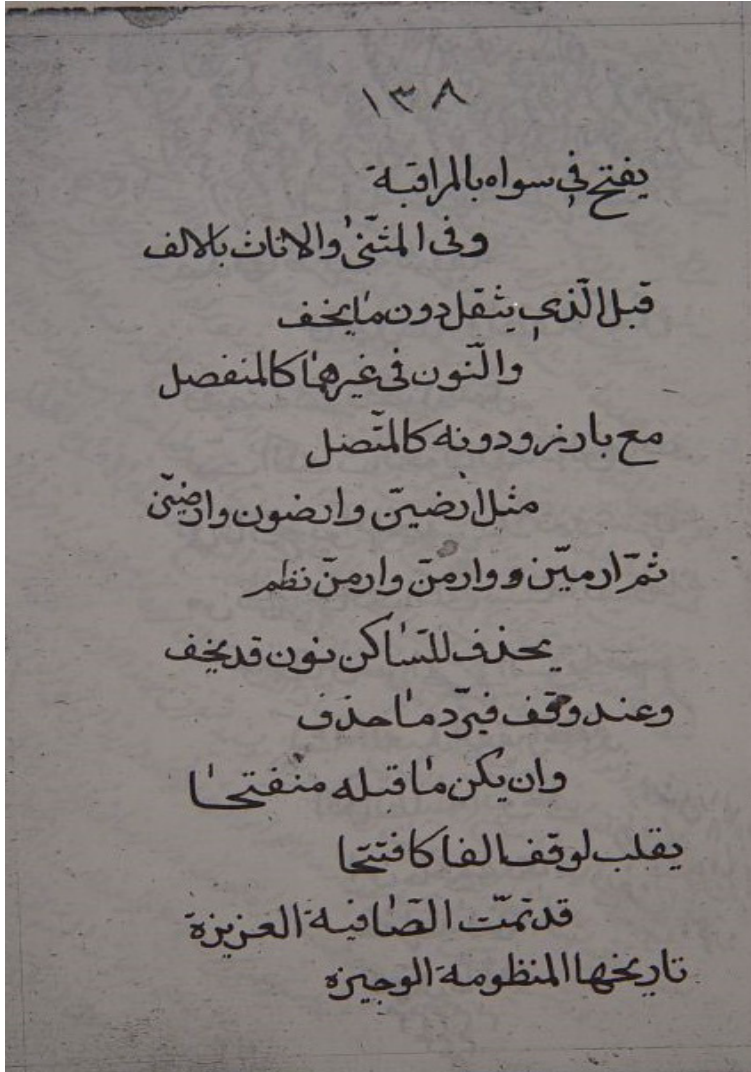 ١٣٨
يفتح في سواه بالمراقبة
وفى المثنّى والاناث بالالف
قبل الّذي يثقل دون ما يخف
والنّون فى غيرهما كالمنفصل
مع بارز ودونه كالمتّصل
مثل ارضينّ وارضون وارضينّ
ثمّ ارمينّ و وارمنّ وارمنّ نظم
يحذف للسّاكن نون قد يخف
وعند وقف فيردّ ما حذف
وان يكن ما قبله منفتحا
يقلب لوقف الفا كافتتحا
قد تمّت الصّافية العزيزة
تاريخها المنظومة الوجيزة